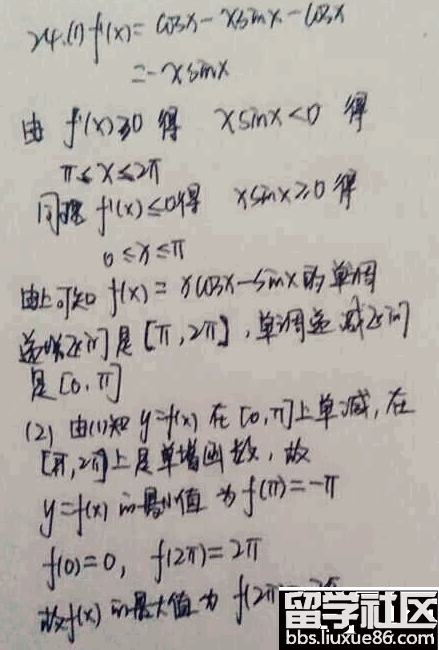 24.(1) f'(x)= cosx-xsinx-cosx
=-xsinx
由 f'(x)≥0 得 xsinx<0 得
π≤x≤2π
同理 f'(x)≤0得 xsinx≥0 得
0≤x≤π
由上可知 f(x)= xcosx-sinx的单调
递增区间是[π,2π],单调递减区间
是[0,π]
(2) 由(1)知 y=f(x) 在[0,π]上单减,在
[π,2π]上是单增函数,故
y=f(x)的最小值为f(π)=-π
f(0)=0, f(2π)=2π
故f(x)的最大值为 f(2π)=2π
留学社区
bbs.liuxue86.com